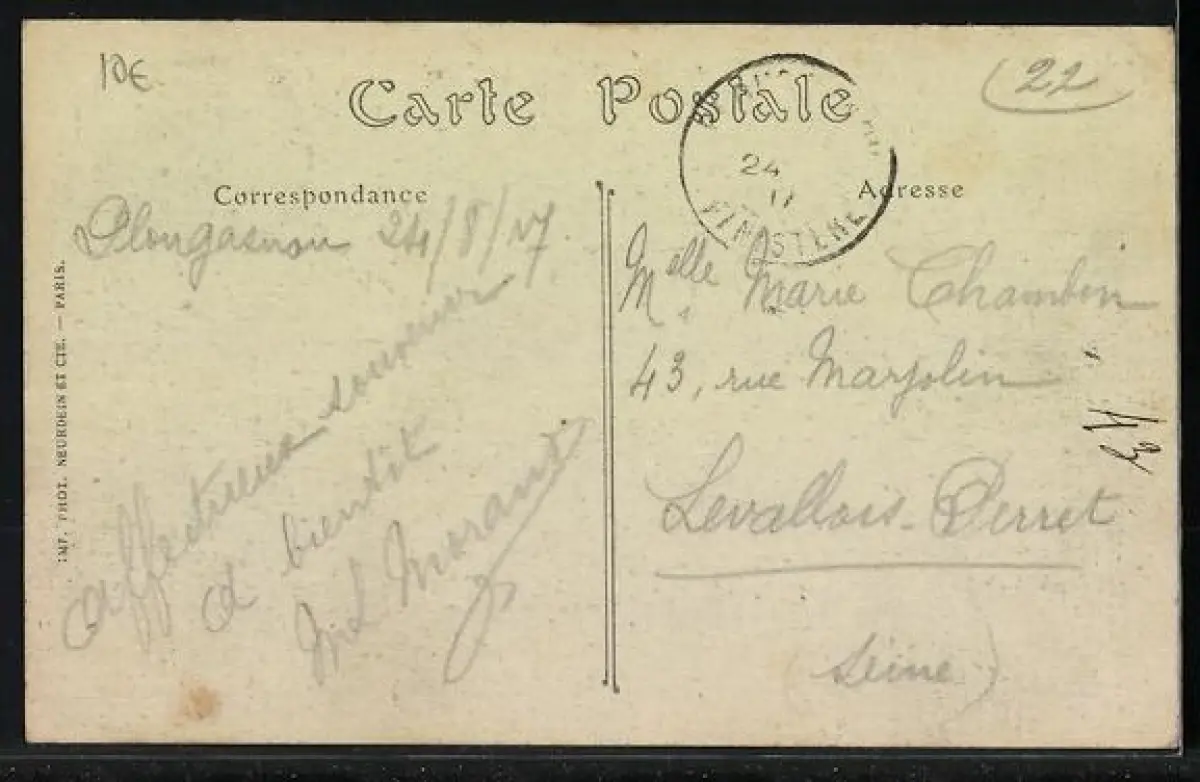 10€
22
Carte Postale
Correspondance
Adresse
24
FINISTÈRE
Plougasnou 24/8/17.
affectueux souvenir
a bientot
Morand
Melle Marie Chambon
43, rue Marjolin
43
Levallois-Perret
(Seine)
IMP. PHOT. NEURDEIN ET CIE. — PARIS.